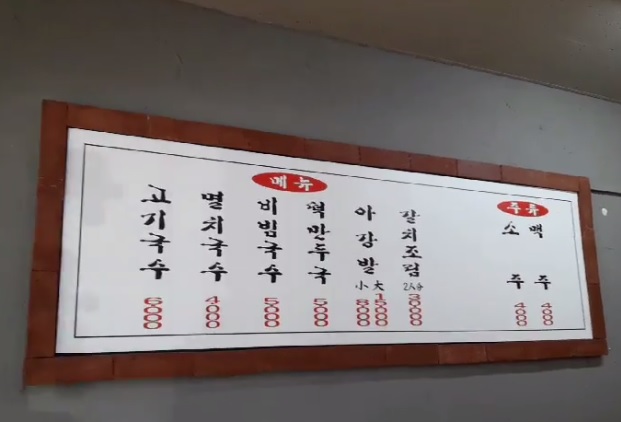 메뉴
고기국수 6000
멸치국수 4000
비빔국수 5000
떡만두국 5000
아강발 小 8000 大 15000
갈치조림 2人分 30000
주류
소주 4000
맥주 4000